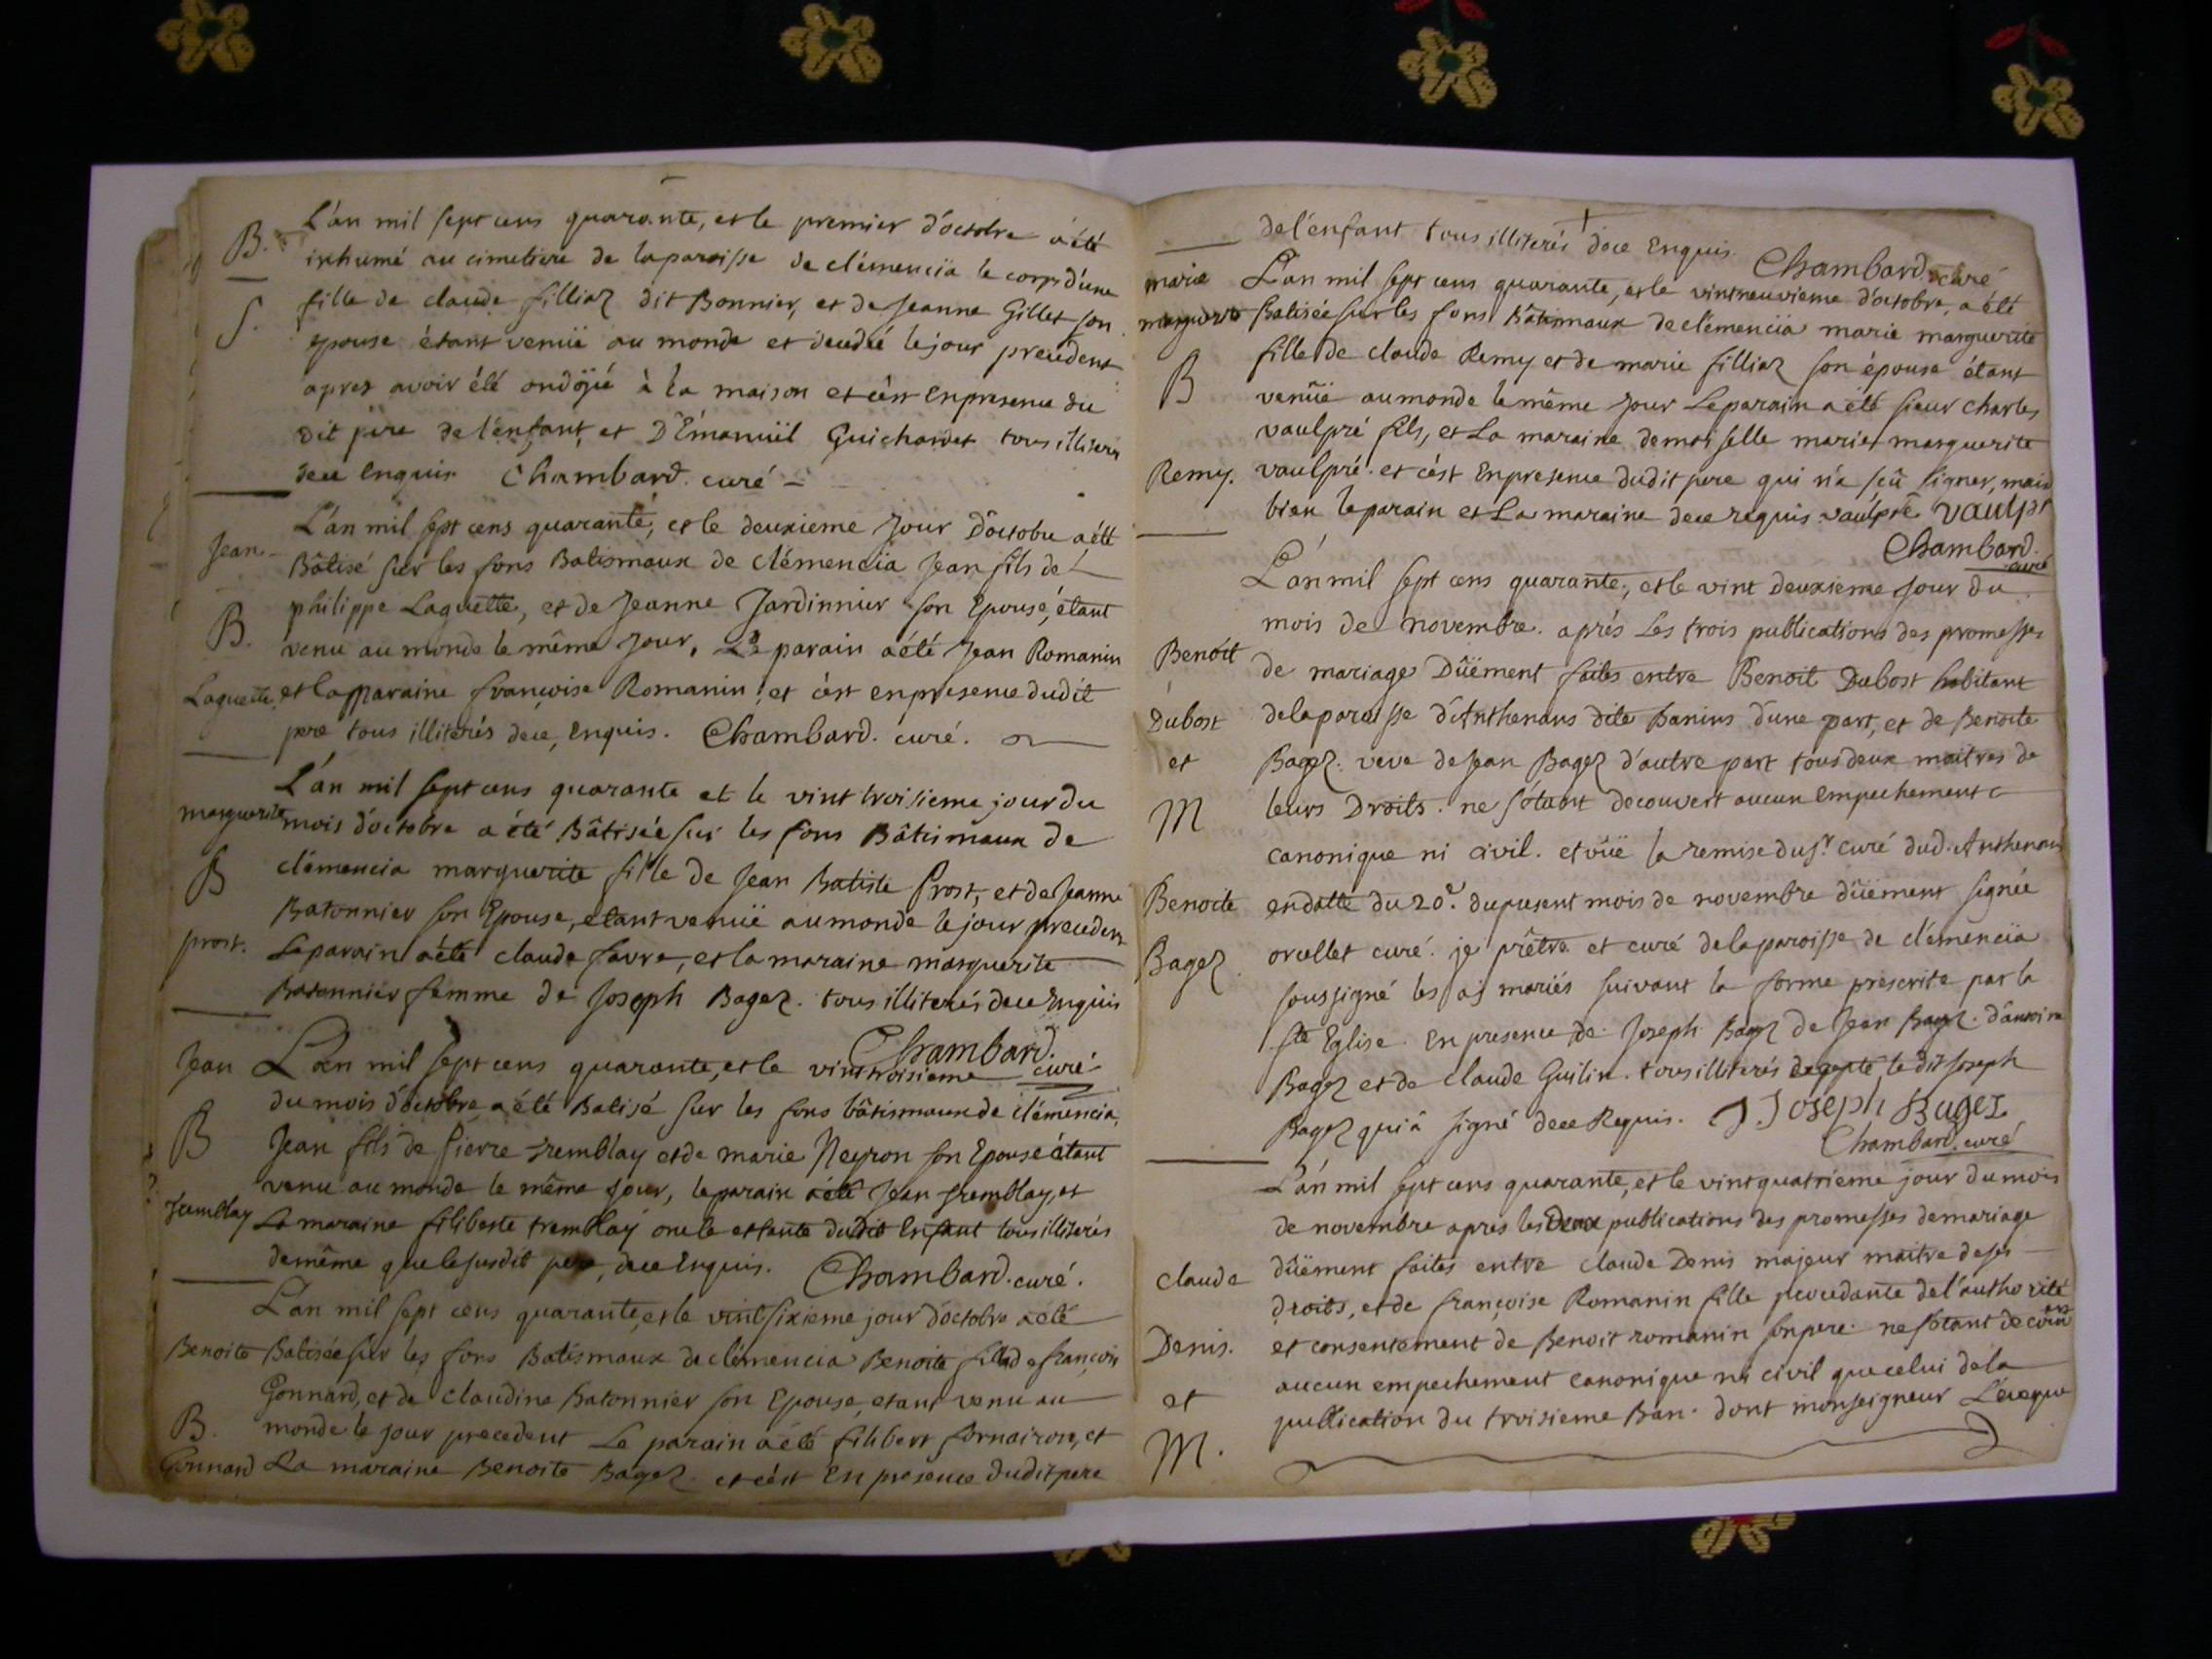 L'an mil sept cens quarante, et le premier d'octobre a été
B.
inhumé au cimetiere de la paroisse de clémencia le corps d'une
fille de claude filliaz dit Bonnier, et de Jeanne Gillet son
S.
epouse étant venuë au monde et decedée le jour precedent
apres avoir été ondoÿé à la maison et c'est En presence du
dit pere de l'enfant, et D'Emanuël Guichardet tous illiterés
de ce Enquis Chambard. curé
L'an mil sept cens quarante, et le deuxieme Jour D'octobre a été
Jean
Bâtisé sur les fons Batismaux de clémencia Jean fils de
philippe Laguette, et de Jeanne Jardinnier son Epouse, étant
B.
venu au monde le même Jour, Le parain a été Jean Romanin
Laguette, et la maraine françoise Romanin, et c'est en presence dudit
pere tous illiterés de ce, Enquis. Chambard. curé.
L'an mil sept cens quarante et le vint troisieme jour du
marguerite mois d'octobre a été Bâtisée sur les fons Bâtismaux de
B clémencia marguerite fille de Jean Batiste Prost, et de Jeanne
Batonnier son Epouse, etant venuë au monde le jour precedent
prost. Le parain a été claude favre, et la maraine marguerite
Batonnier femme de Joseph Bagez. tous illiterés de ce Enquis
Chambard. curé
Jean L'an mil sept cens quarante, et le vint troisieme
du mois d'octobre a été Batisé sur les fons bâtismaux de clémencia,
B Jean fils de Pierre tremblay et de marie Neyron son Epouse étant
venu au monde le même Jour, le parain a été Jean tremblay, et
tremblay La maraine filiberte tremblay oncle et tante dudit Enfant tous illiterés
de même que le susdit pere, de ce Enquis. Chambard. curé.
L'an mil sept cens quarante, et le vint sixieme jour d'octobre a été
Benoite Batisée sur les fons Batismaux de clémencia Benoite fille de françois
Gonnard, et de Claudine Batonnier son Epouse, etant venu au
B. monde le jour precedent Le parain a été filibert fornairon, et
Gonnard La maraine Benoite Bagez. et c'est En presence dudit pere
de l'enfant tous illiterés de ce Enquis. Chambard. curé
marie L'an mil sept cens quarante, et le vint neuvieme d'octobre, a été
marguerite Batisée sur les fons Bâtismaux de clémencia marie marguerite
fille de claude Remy et de marie filliaz son épouse étant
B venuë au monde le même Jour Le parain a été sieur charles
vaulpré fils, et La maraine demoiselle marie marguerite
Remy. vaulpré. et c'est En presence dudit pere qui n'a sçû signer, mais
bien le parain et La maraine de ce requis. vaulpré vaulpr
Chambard. curé
L'an mil sept cens quarante, et le vint deuxieme Jour du
mois de novembre. aprés Les trois publications des promesses
Benoit de mariage Dûëment faites entre Benoit Dubost habitant
Dubost de la paroisse d'Anthenans dite Banins d'une part, et de Benoite
et Bagez. veve de Jean Bagez d'autre part tous deux maitres de
M leurs Droits. ne s'étant decouvert aucun Empechement
canonique ni civil. et vûë la remise du sr. curé dud. Anthenans
Benoite en datte du 20e. du present mois de novembre dûëment signée
Bagez orcellet curé. je prêtre et curé de la paroisse de clémencia
soussigné les ai mariés suivant la forme prescrite par la
Ste Eglise. En presence de Joseph Bagez de Jean Bagez.
Bagez et de claude Guilin. tous illiterés excepté le dit Joseph
Bagez qui a signé de ce Requis. J. Joseph Bagez
Chambard. curé
L'an mil sept cens quarante, et le vint quatrieme jour du mois
de novembre apres les Deux publications des promesses de mariage
claude dûëment faites entre claude Denis majeur maitre de ses
droits, et de françoise Romanin fille procedante de l'authorité
Denis. et consentement de Benoit romanin son pere. ne s'étant decouv
et aucun empechement canonique ni civil que celui de la
M. publication du troisieme Ban. dont monseigneur L'éveque